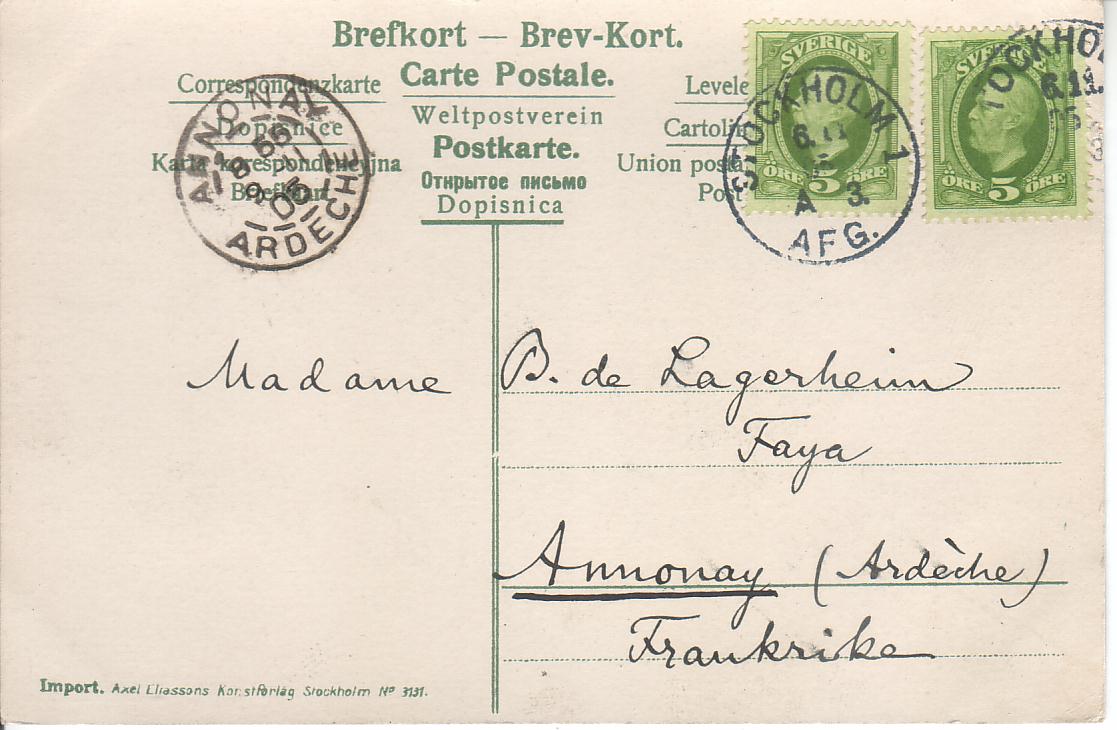 Brefkort — Brev-Kort.
Correspondenzkarte Carte Postale. Levele
Dopisnice Weltpostverein Cartolin
Karta Korrespondencyjna Postkarte. Union posta
Briefkaart Открытое письмо Post
Dopisnica
ANNONAY
ARDECHE
SVERIGE
ÖRE 5 ÖRE
STOCKHOLM 1
6.11
A 3
AFG.
ÖRE 5 ÖRE
TOCKHOL
6.11.
Madame B. de Lagerheim
Faya
Annonay (Ardèche)
Frankrike
Import. Axel Eliassons Konstförlag Stockholm Nº 3131.